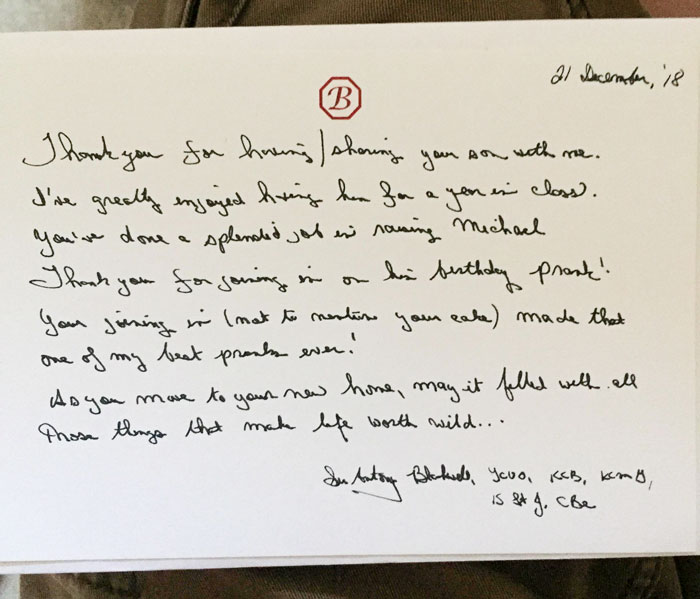 21 December, '18
B
Thank you for having/sharing your son with me.
I've greatly enjoyed having him for a year in class.
You've done a splendid job in raising Michael
Thank you for joining in on his birthday prank!
Your joining in (not to mention your cake) made that
one of my best pranks ever!
As you move to your new home, may it filled with all
those things that make life worth wild...
Sir Antony KCB, KCMG,
St J, CBE